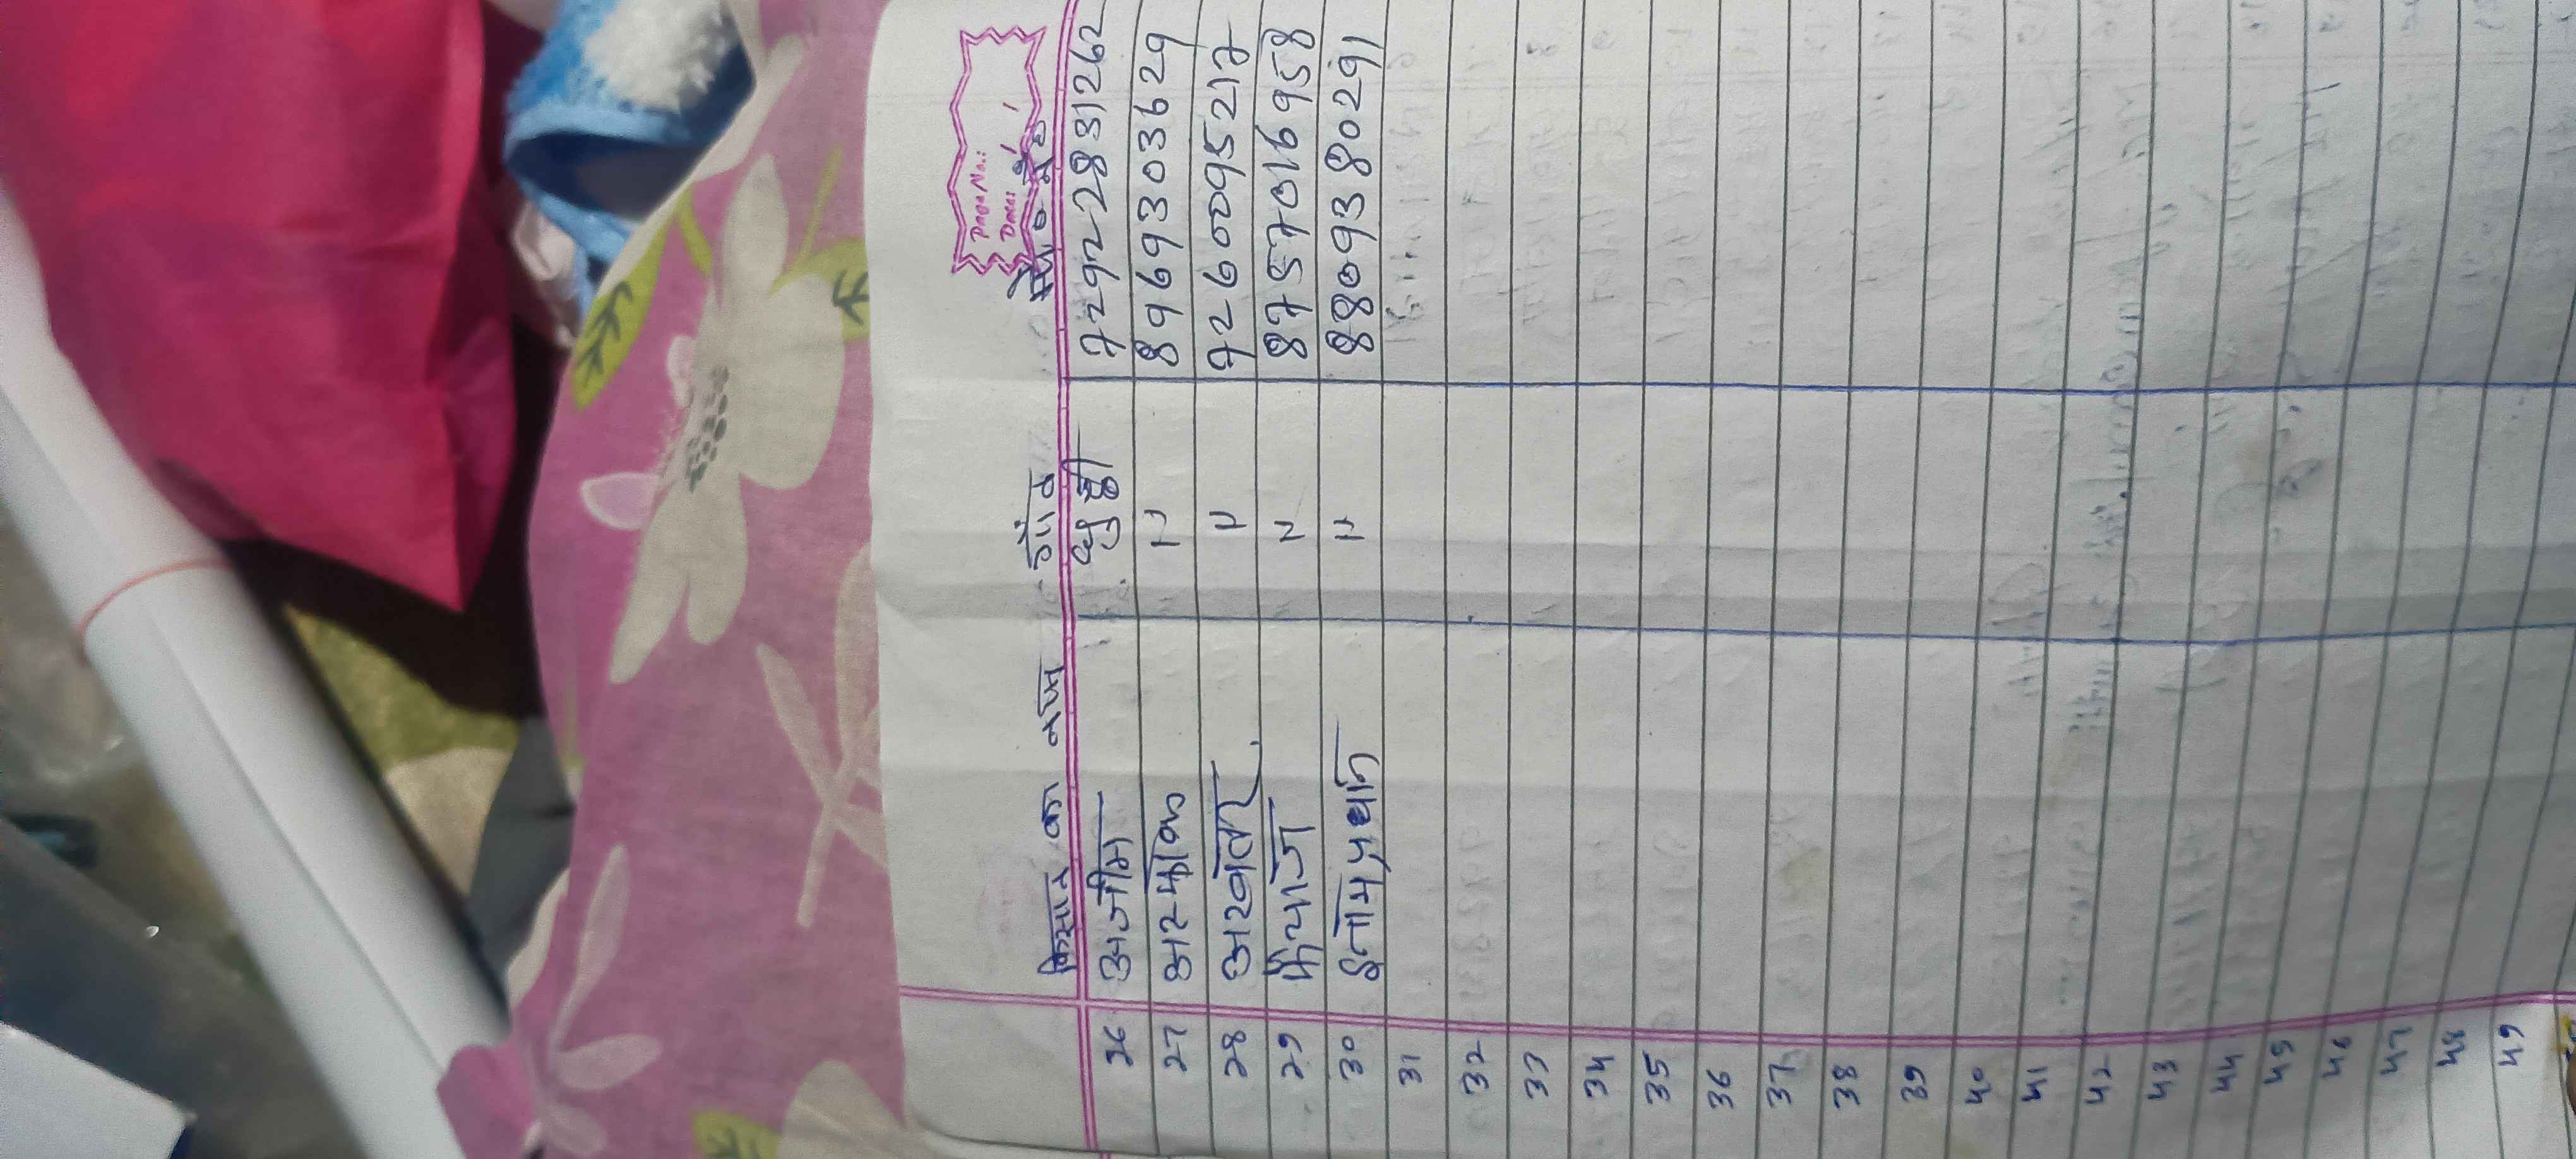 Page No.:
Date:
किसान का नाम गांव मो० नं०
26 अजीम धुन्धी 7292283126２
27 अशफाक 〃 8969303629
28 अख्तर 〃 7260095217
29 फैयाज 〃 8757016958
30 इनाम प्रधान 〃 8809380291
31
32
33
34
35
36
37
38
39
40
41
42
43
44
45
46
47
48
49